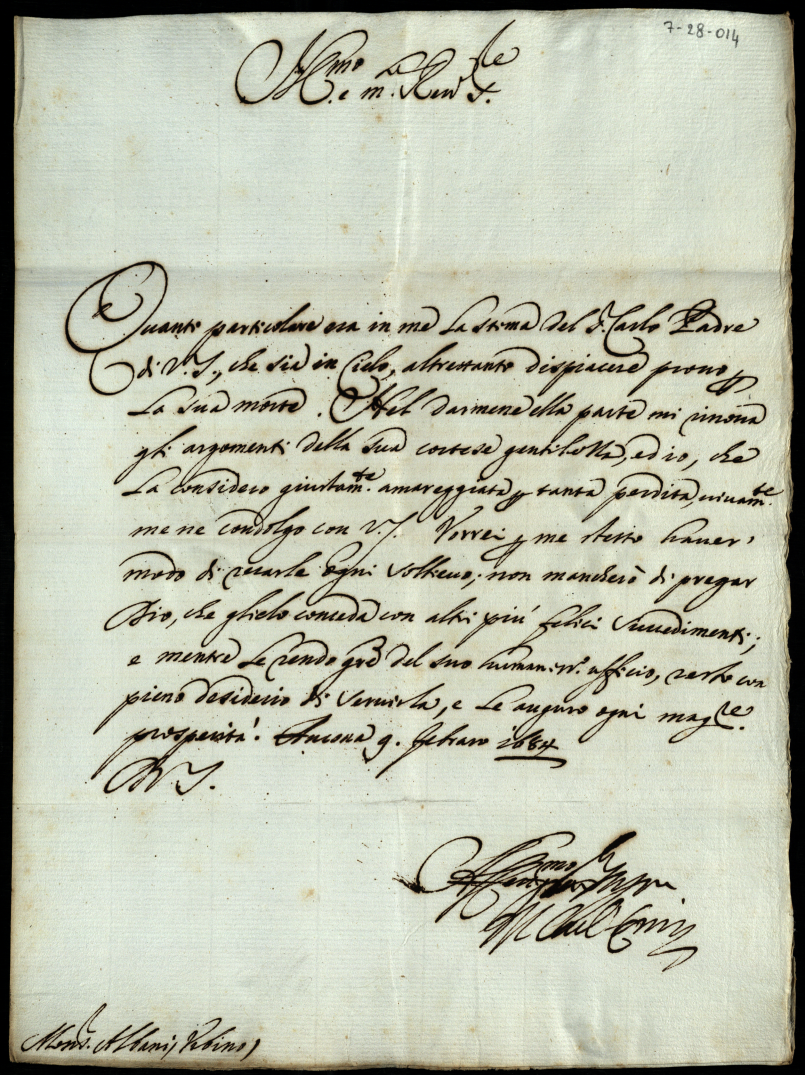 7-28-014
Ill.mo e m. Rev. S.re
Quanto particolare era in me la stima del S. Carlo Padre
di V.S., che sia in Cielo, altrettanto dispiacere provo p
la sua morte. Nel darmene ella parte mi rinova
gli argomenti della sua cortese gentilezza, ed io, che
la considero giustam.te amareggiata p tanta perdita, vivam.te
me ne condolgo con V.S. Vorrei p me stesso haver
modo di recarle ogni sollievo; non mancherò di pregar
Dio, che glielo conceda con altri più felici succedimenti;
e mentre le rendo gre del suo humaniss.o ufficio, resto con
pieno desiderio di servirla, e le auguro ogni mag.re
prosperità. Ancona 9. febraro 1684
Di V.S.
Aff.mo
Mons. Albani, Urbino